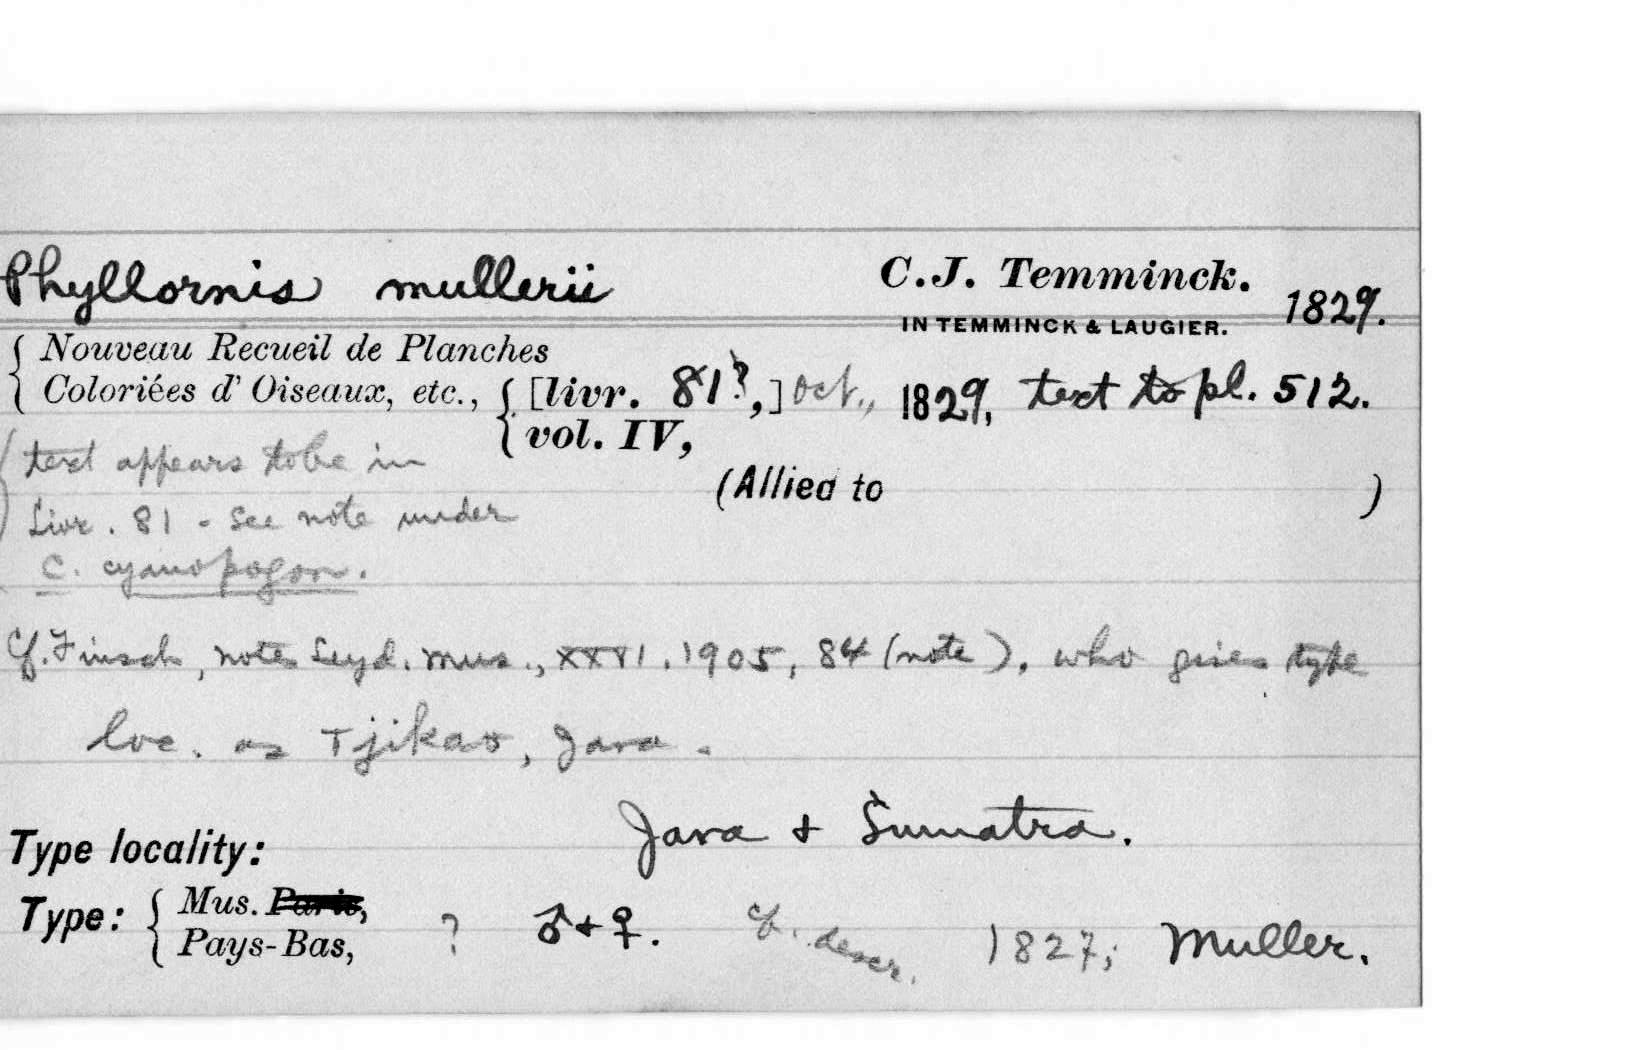 Phyllornis mullerii C.J. Temminck. 1829.
IN TEMMINCK & LAUGIER.
Nouveau Recueil de Planches
Coloriées d' Oiseaux, etc., [livr. 81?,] Oct., 1829, text to pl. 512.
vol. IV,
text appears to be in
(Allied to )
Livr. 81 - See note under
C. cyanopogon.
Cf. Finsch, notes Leyd. Mus., XXVI, 1905, 84 (note), who gives type
loc. as Tjikao, Java.
Java & Sumatra.
Type locality:
Type: Mus. Paris,
Pays-Bas, ? ♂ + ♀. Cf. descr. 1827; Muller.